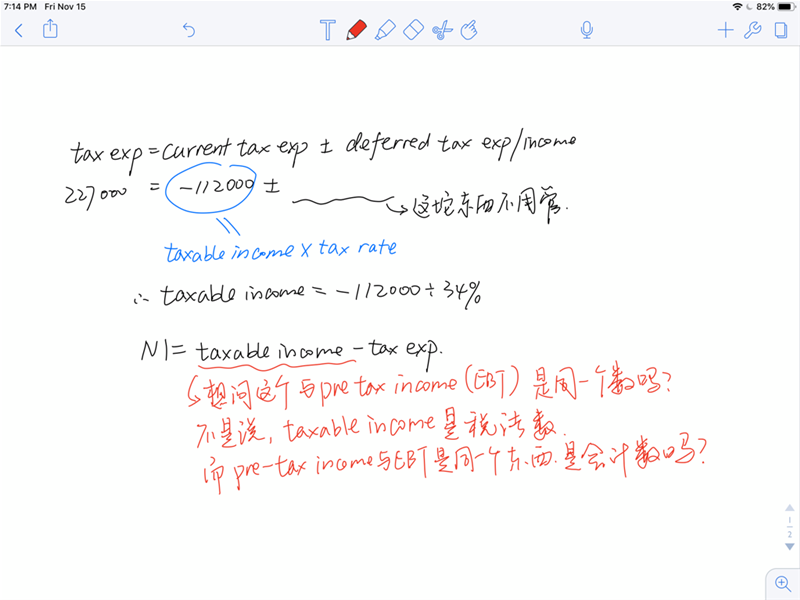 7:14 PM Fri Nov 15
82%
T
tax exp = current tax exp ± deferred tax exp/income
227000 = -112000 ±
这坨东西不用管.
taxable income x tax rate
∴ taxable income = -112000 ÷ 34%
NI = taxable income - tax exp.
想问这个与pre tax income (EBT) 是同一个数吗?
不是说, taxable income是税法数.
而 pre-tax income与EBT是同一个东西. 是会计数吗?
1
2